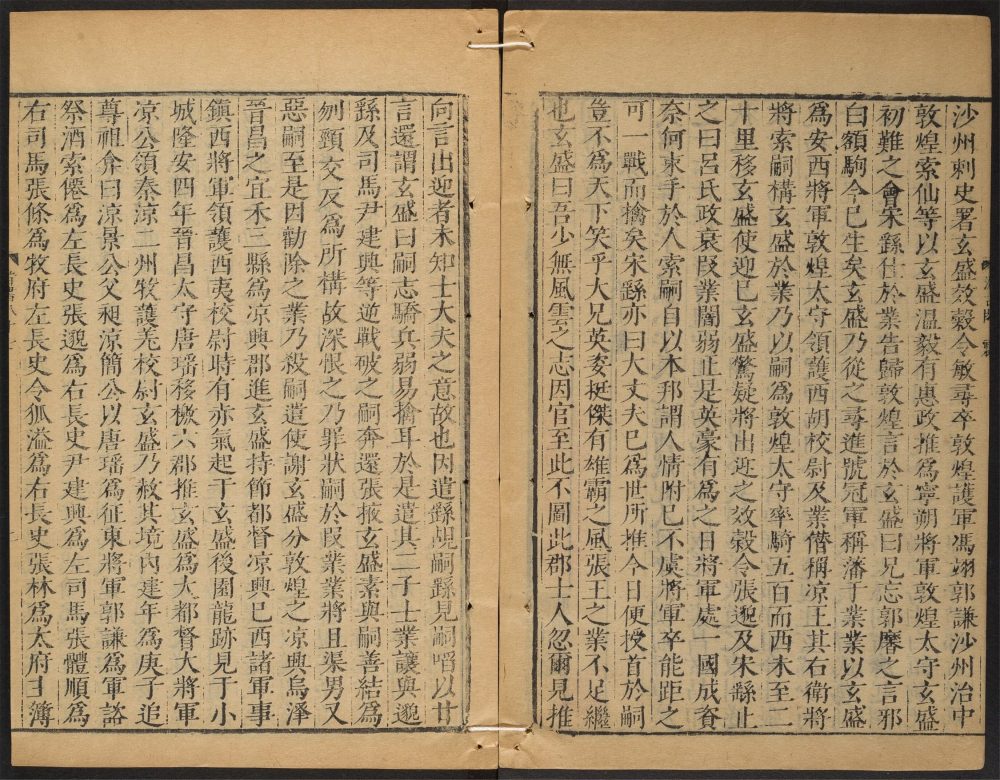 沙州刺史署玄盛效穀令敏尋卒敦煌護軍馮翊郭謙沙州治中
敦煌索仙等以玄盛温毅有惠政推爲寧朔將軍敦煌太守玄盛
初難之會宋繇仕於業告歸敦煌言於玄盛曰兄忘郭黁之言邪
白額駒今已生矣玄盛乃從之尋進號冠軍稱藩于業業以玄盛
爲安西將軍敦煌太守領護西胡校尉及業僭稱凉王其右衛將
將索嗣構玄盛於業乃以嗣爲敦煌太守率騎五百而西未至二
十里移玄盛使迎已玄盛驚疑將出迎之效穀令張邈及宋繇止
之曰呂氏政衰段業闇弱正是英豪有爲之日將軍處一國成資
奈何束手於人索嗣自以本邦謂人情附已不虞將軍卒能距之
可一戰而擒矣宋繇亦曰大丈夫已爲世所推今日便授首於嗣
豈不爲天下笑乎大兄英姿挺傑有雄霸之風張王之業不足繼
也玄盛曰吾少無風雲之志因官至此不圖此郡士人忽爾見推
向言出迎者未知士大夫之意故也因遣繇覘嗣繇見嗣啗以甘
言還謂玄盛曰嗣志驕兵弱易擒耳於是遣其二子士業讓與邈
繇及司馬尹建興等逆戰破之嗣奔還張掖玄盛素與嗣善結爲
刎頸交反爲所構故深恨之乃罪狀嗣於段業業將且渠男又
惡嗣至是因勸除之業乃殺嗣遣使謝玄盛分敦煌之凉興烏澤
晉昌之宜禾三縣爲凉興郡進玄盛持節都督凉興已西諸軍事
鎮西將軍領護西夷校尉時有赤氣起于玄盛後園龍跡見于小
城隆安四年晉昌太守唐瑶移檄六郡推玄盛爲大都督大將軍
凉公領秦凉二州牧護羌校尉玄盛乃赦其境内建年爲庚子追
尊祖弇曰凉景公父昶凉簡公以唐瑶爲征東將軍郭謙爲軍諮
祭酒索僊爲左長史張邈爲右長史尹建興爲左司馬張體順爲
右司馬張條爲牧府左長史令狐溢爲右長史張林爲太府主簿